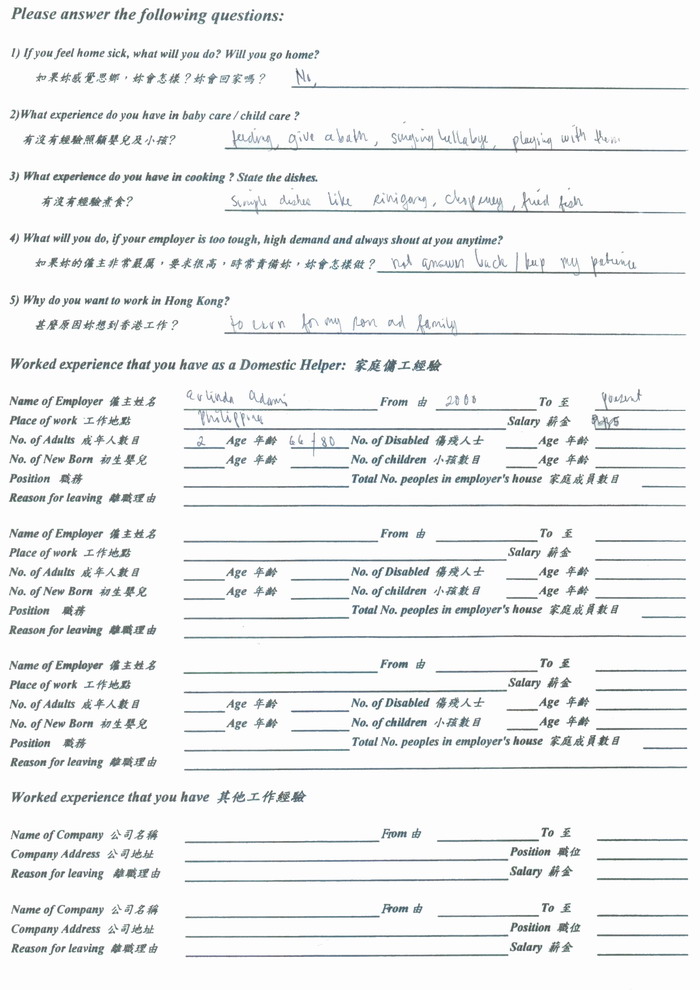 Please answer the following questions:
1) If you feel home sick, what will you do? Will you go home?
如果妳感覺思鄉，妳會怎樣？妳會回家嗎？ No,
2)What experience do you have in baby care / child care ?
有沒有經驗照顧嬰兒及小孩? feeding, give a bath, singing lullabye, playing with them
3) What experience do you have in cooking ? State the dishes.
有沒有經驗煮食? Simple dishes like sinigang, chopsuey, fried fish
4) What will you do, if your employer is too tough, high demand and always shout at you anytime?
如果妳的僱主非常嚴厲，要求很高，時常責備妳，妳會怎樣做？ not answer back / keep my patience
5) Why do you want to work in Hong Kong?
甚麼原因妳想到香港工作？ to earn for my son and family
Worked experience that you have as a Domestic Helper: 家庭傭工經驗
Name of Employer 僱主姓名 arlinda From 由 2000 To 至 present
Place of work 工作地點 Philippine Salary 薪金
No. of Adults 成年人數目 2 Age 年齡 66 / 80 No. of Disabled 傷殘人士 Age 年齡
No. of New Born 初生嬰兒 Age 年齡 No. of children 小孩數目 Age 年齡
Position 職務 Total No. peoples in employer's house 家庭成員數目
Reason for leaving 離職理由
Name of Employer 僱主姓名 From 由 To 至
Place of work 工作地點 Salary 薪金
No. of Adults 成年人數目 Age 年齡 No. of Disabled 傷殘人士 Age 年齡
No. of New Born 初生嬰兒 Age 年齡 No. of children 小孩數目 Age 年齡
Position 職務 Total No. peoples in employer's house 家庭成員數目
Reason for leaving 離職理由
Name of Employer 僱主姓名 From 由 To 至
Place of work 工作地點 Salary 薪金
No. of Adults 成年人數目 Age 年齡 No. of Disabled 傷殘人士 Age 年齡
No. of New Born 初生嬰兒 Age 年齡 No. of children 小孩數目 Age 年齡
Position 職務 Total No. peoples in employer's house 家庭成員數目
Reason for leaving 離職理由
Worked experience that you have 其他工作經驗
Name of Company 公司名稱 From 由 To 至
Company Address 公司地址 Position 職位
Reason for leaving 離職理由 Salary 薪金
Name of Company 公司名稱 From 由 To 至
Company Address 公司地址 Position 職位
Reason for leaving 離職理由 Salary 薪金